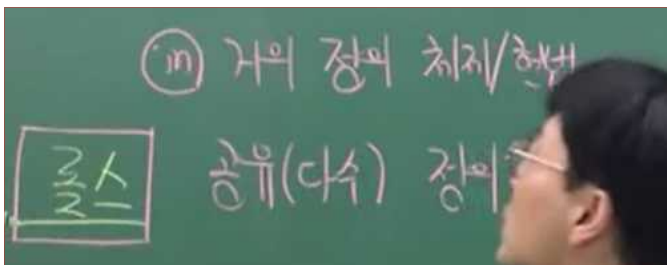 in 거의 정의 처지/헌법
롤스 공유(다수) 정의